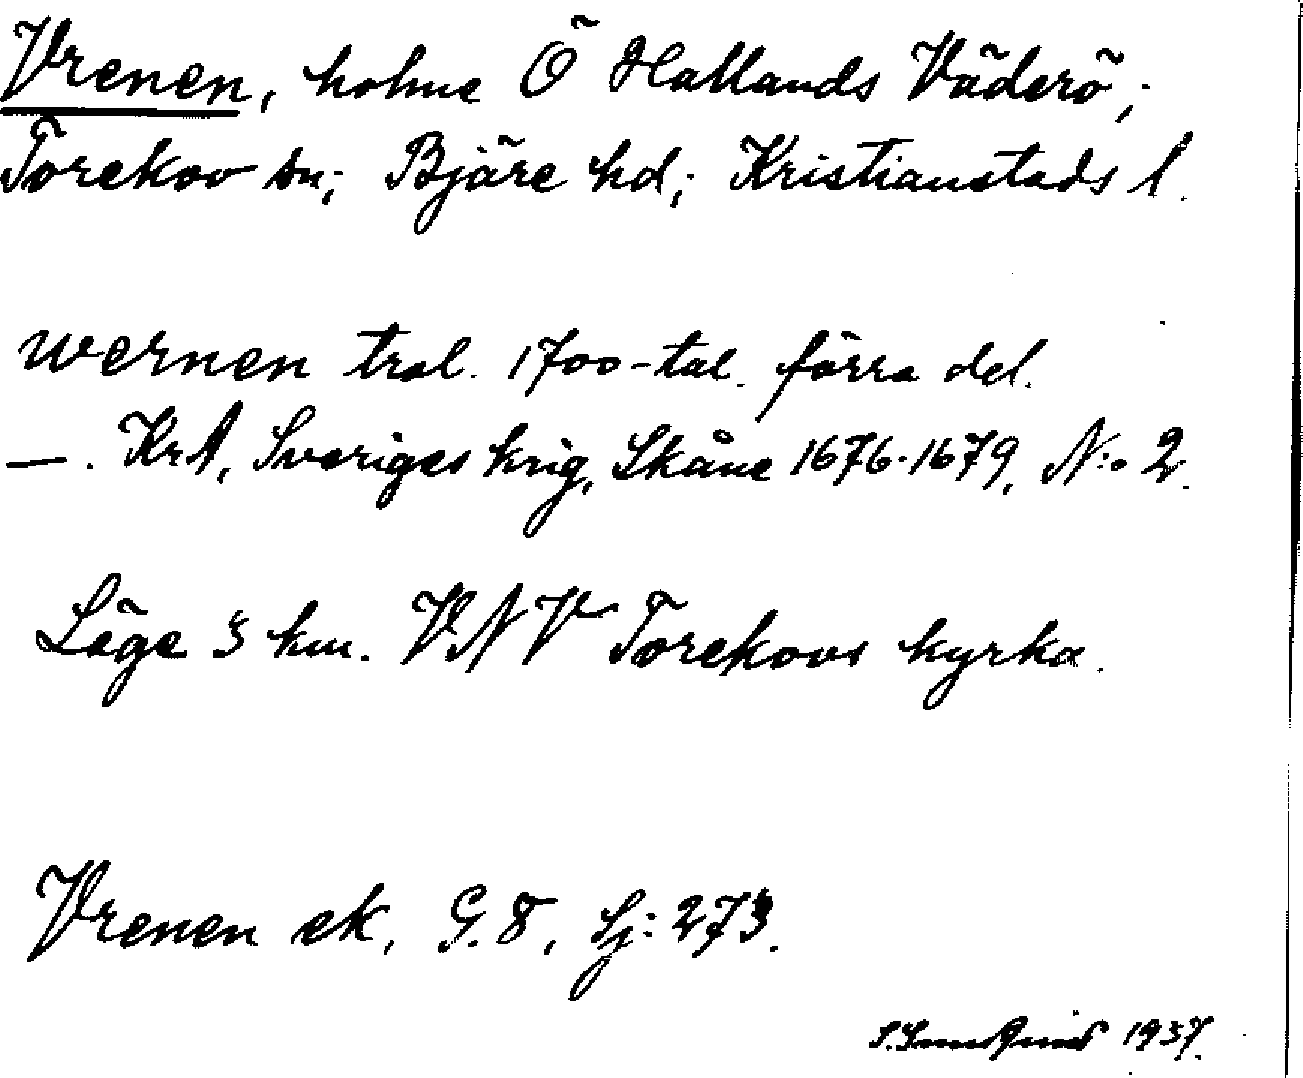 Vrenen, holme Ö Hallands Väderö,;
Torekov sn; Bjäre hd; Kristianstads l.
wernen trol. 1700-tal. förra del.
—. KrA, Sveriges krig, Skåne 1676-1679, N:o 2.
Läge 3 km. VNV Torekovs kyrka.
Vrenen ek, G. 8, Sj: 273.
1937.